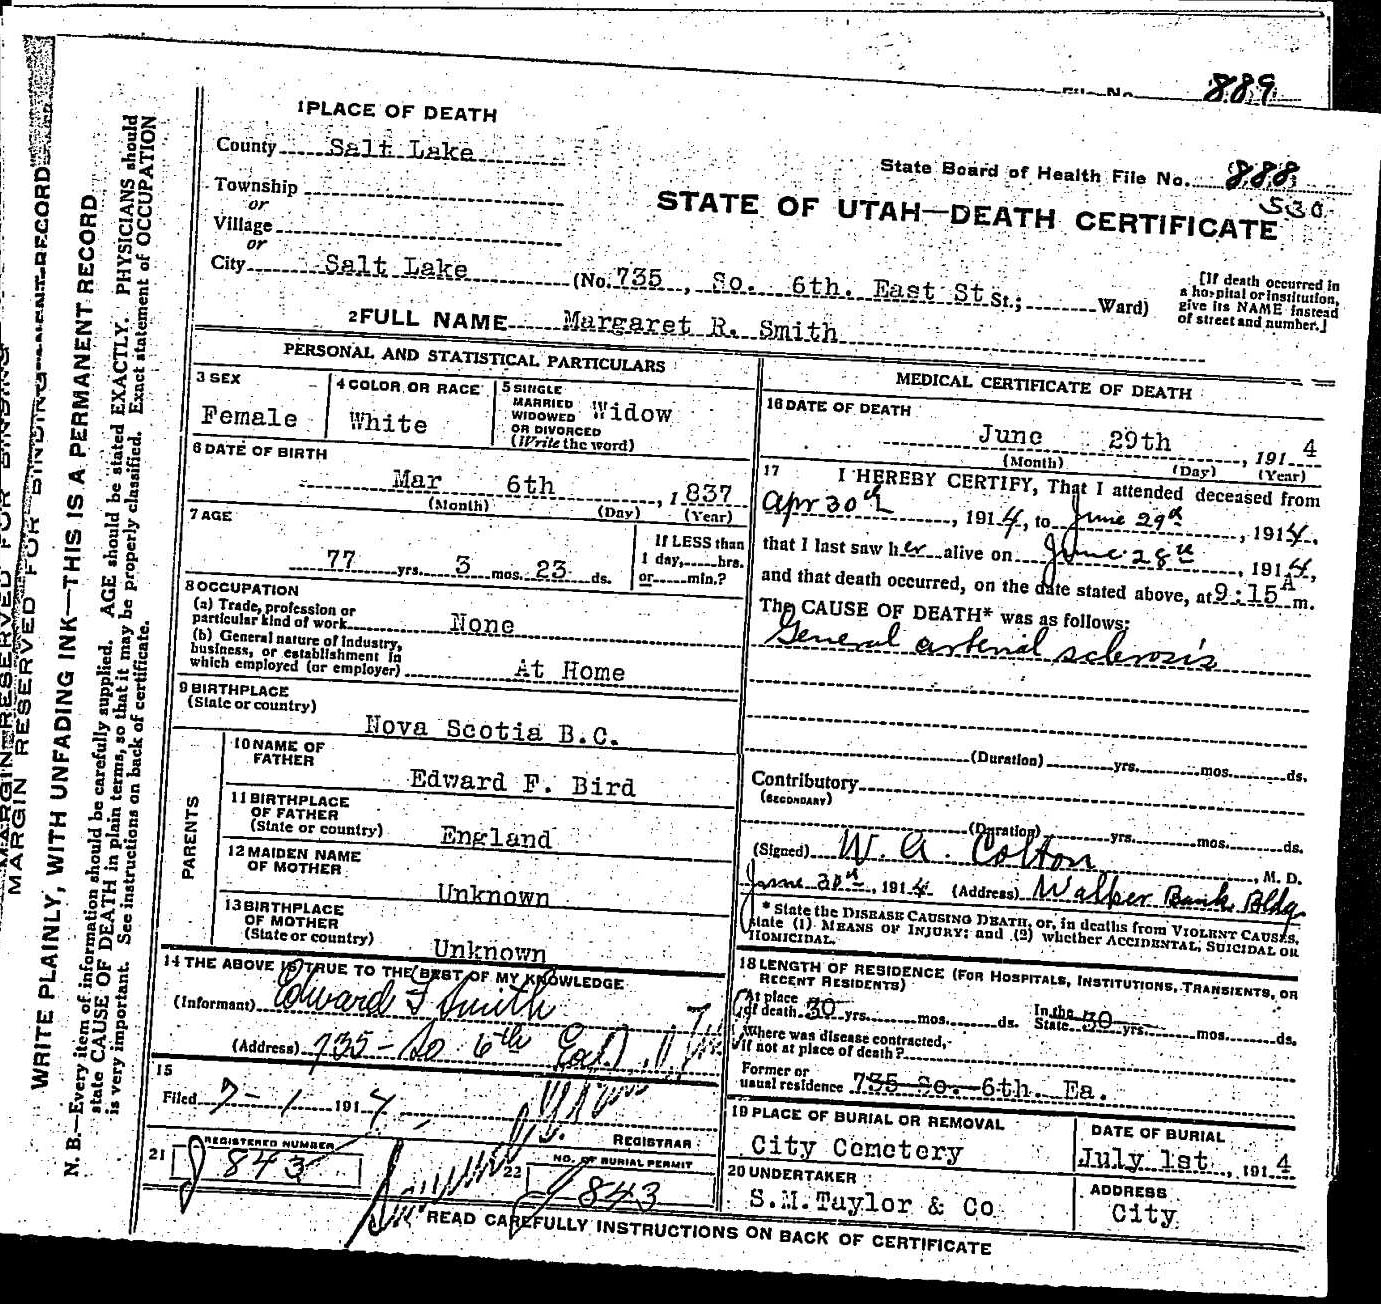 File No. 889
1 PLACE OF DEATH
County Salt Lake
State Board of Health File No. 888
530
Township
or
Village
or
STATE OF UTAH—DEATH CERTIFICATE
City Salt Lake (No. 735, So. 6th. East St St.; Ward)
[If death occurred in
a hospital or institution,
give its NAME instead
of street and number.]
2 FULL NAME Margaret R. Smith
PERSONAL AND STATISTICAL PARTICULARS
3 SEX
Female
4 COLOR OR RACE
White
5 SINGLE
MARRIED
WIDOWED
OR DIVORCED
(Write the word)
Widow
6 DATE OF BIRTH
Mar 6th, 1837
(Month) (Day) (Year)
7 AGE
77 yrs. 3 mos. 23 ds.
If LESS than
1 day, hrs.
or min.?
8 OCCUPATION
(a) Trade, profession or
particular kind of work None
(b) General nature of industry,
business, or establishment in
which employed (or employer) At Home
9 BIRTHPLACE
(State or country)
Nova Scotia B.C.
PARENTS
10 NAME OF
FATHER
Edward F. Bird
11 BIRTHPLACE
OF FATHER
(State or country)
England
12 MAIDEN NAME
OF MOTHER
Unknown
13 BIRTHPLACE
OF MOTHER
(State or country)
Unknown
14 THE ABOVE IS TRUE TO THE BEST OF MY KNOWLEDGE
(Informant) Edward F Smith
(Address) 735 - So 6th East
15
Filed 7-1 1914
REGISTRAR
21 REGISTERED NUMBER
843
22 NO. OF BURIAL PERMIT
843
MEDICAL CERTIFICATE OF DEATH
16 DATE OF DEATH
June 29th, 1914
(Month) (Day) (Year)
17 I HEREBY CERTIFY, That I attended deceased from
Apr 30th, 1914, to June 29th, 1914,
that I last saw her alive on June 28th, 1914,
and that death occurred, on the date stated above, at 9:15 A m.
The CAUSE OF DEATH* was as follows:
General arterial sclerosis
(Duration) yrs. mos. ds.
Contributory
(SECONDARY)
(Duration) yrs. mos. ds.
(Signed) W. A. Colton, M. D.
June 30th, 1914 (Address) Walker Bank Bldg
* State the DISEASE CAUSING DEATH, or, in deaths from VIOLENT CAUSES,
state (1) MEANS OF INJURY; and (2) whether ACCIDENTAL, SUICIDAL OR
HOMICIDAL.
18 LENGTH OF RESIDENCE (FOR HOSPITALS, INSTITUTIONS, TRANSIENTS, OR
RECENT RESIDENTS)
At place
of death 30 yrs. mos. ds.
In the
State 30 yrs. mos. ds.
Where was disease contracted,
if not at place of death?
Former or
usual residence 735 So. 6th. Ea.
19 PLACE OF BURIAL OR REMOVAL
City Cemetery
DATE OF BURIAL
July 1st, 1914
20 UNDERTAKER
S.M. Taylor & Co
ADDRESS
City
READ CAREFULLY INSTRUCTIONS ON BACK OF CERTIFICATE
MARGIN RESERVED FOR BINDING
MARGIN RESERVED FOR BINDING
WRITE PLAINLY, WITH UNFADING INK—THIS IS A PERMANENT RECORD
N. B.—Every item of information should be carefully supplied. AGE should be stated EXACTLY. PHYSICIANS should
state CAUSE OF DEATH in plain terms, so that it may be properly classified. Exact statement of OCCUPATION
is very important. See instructions on back of certificate.